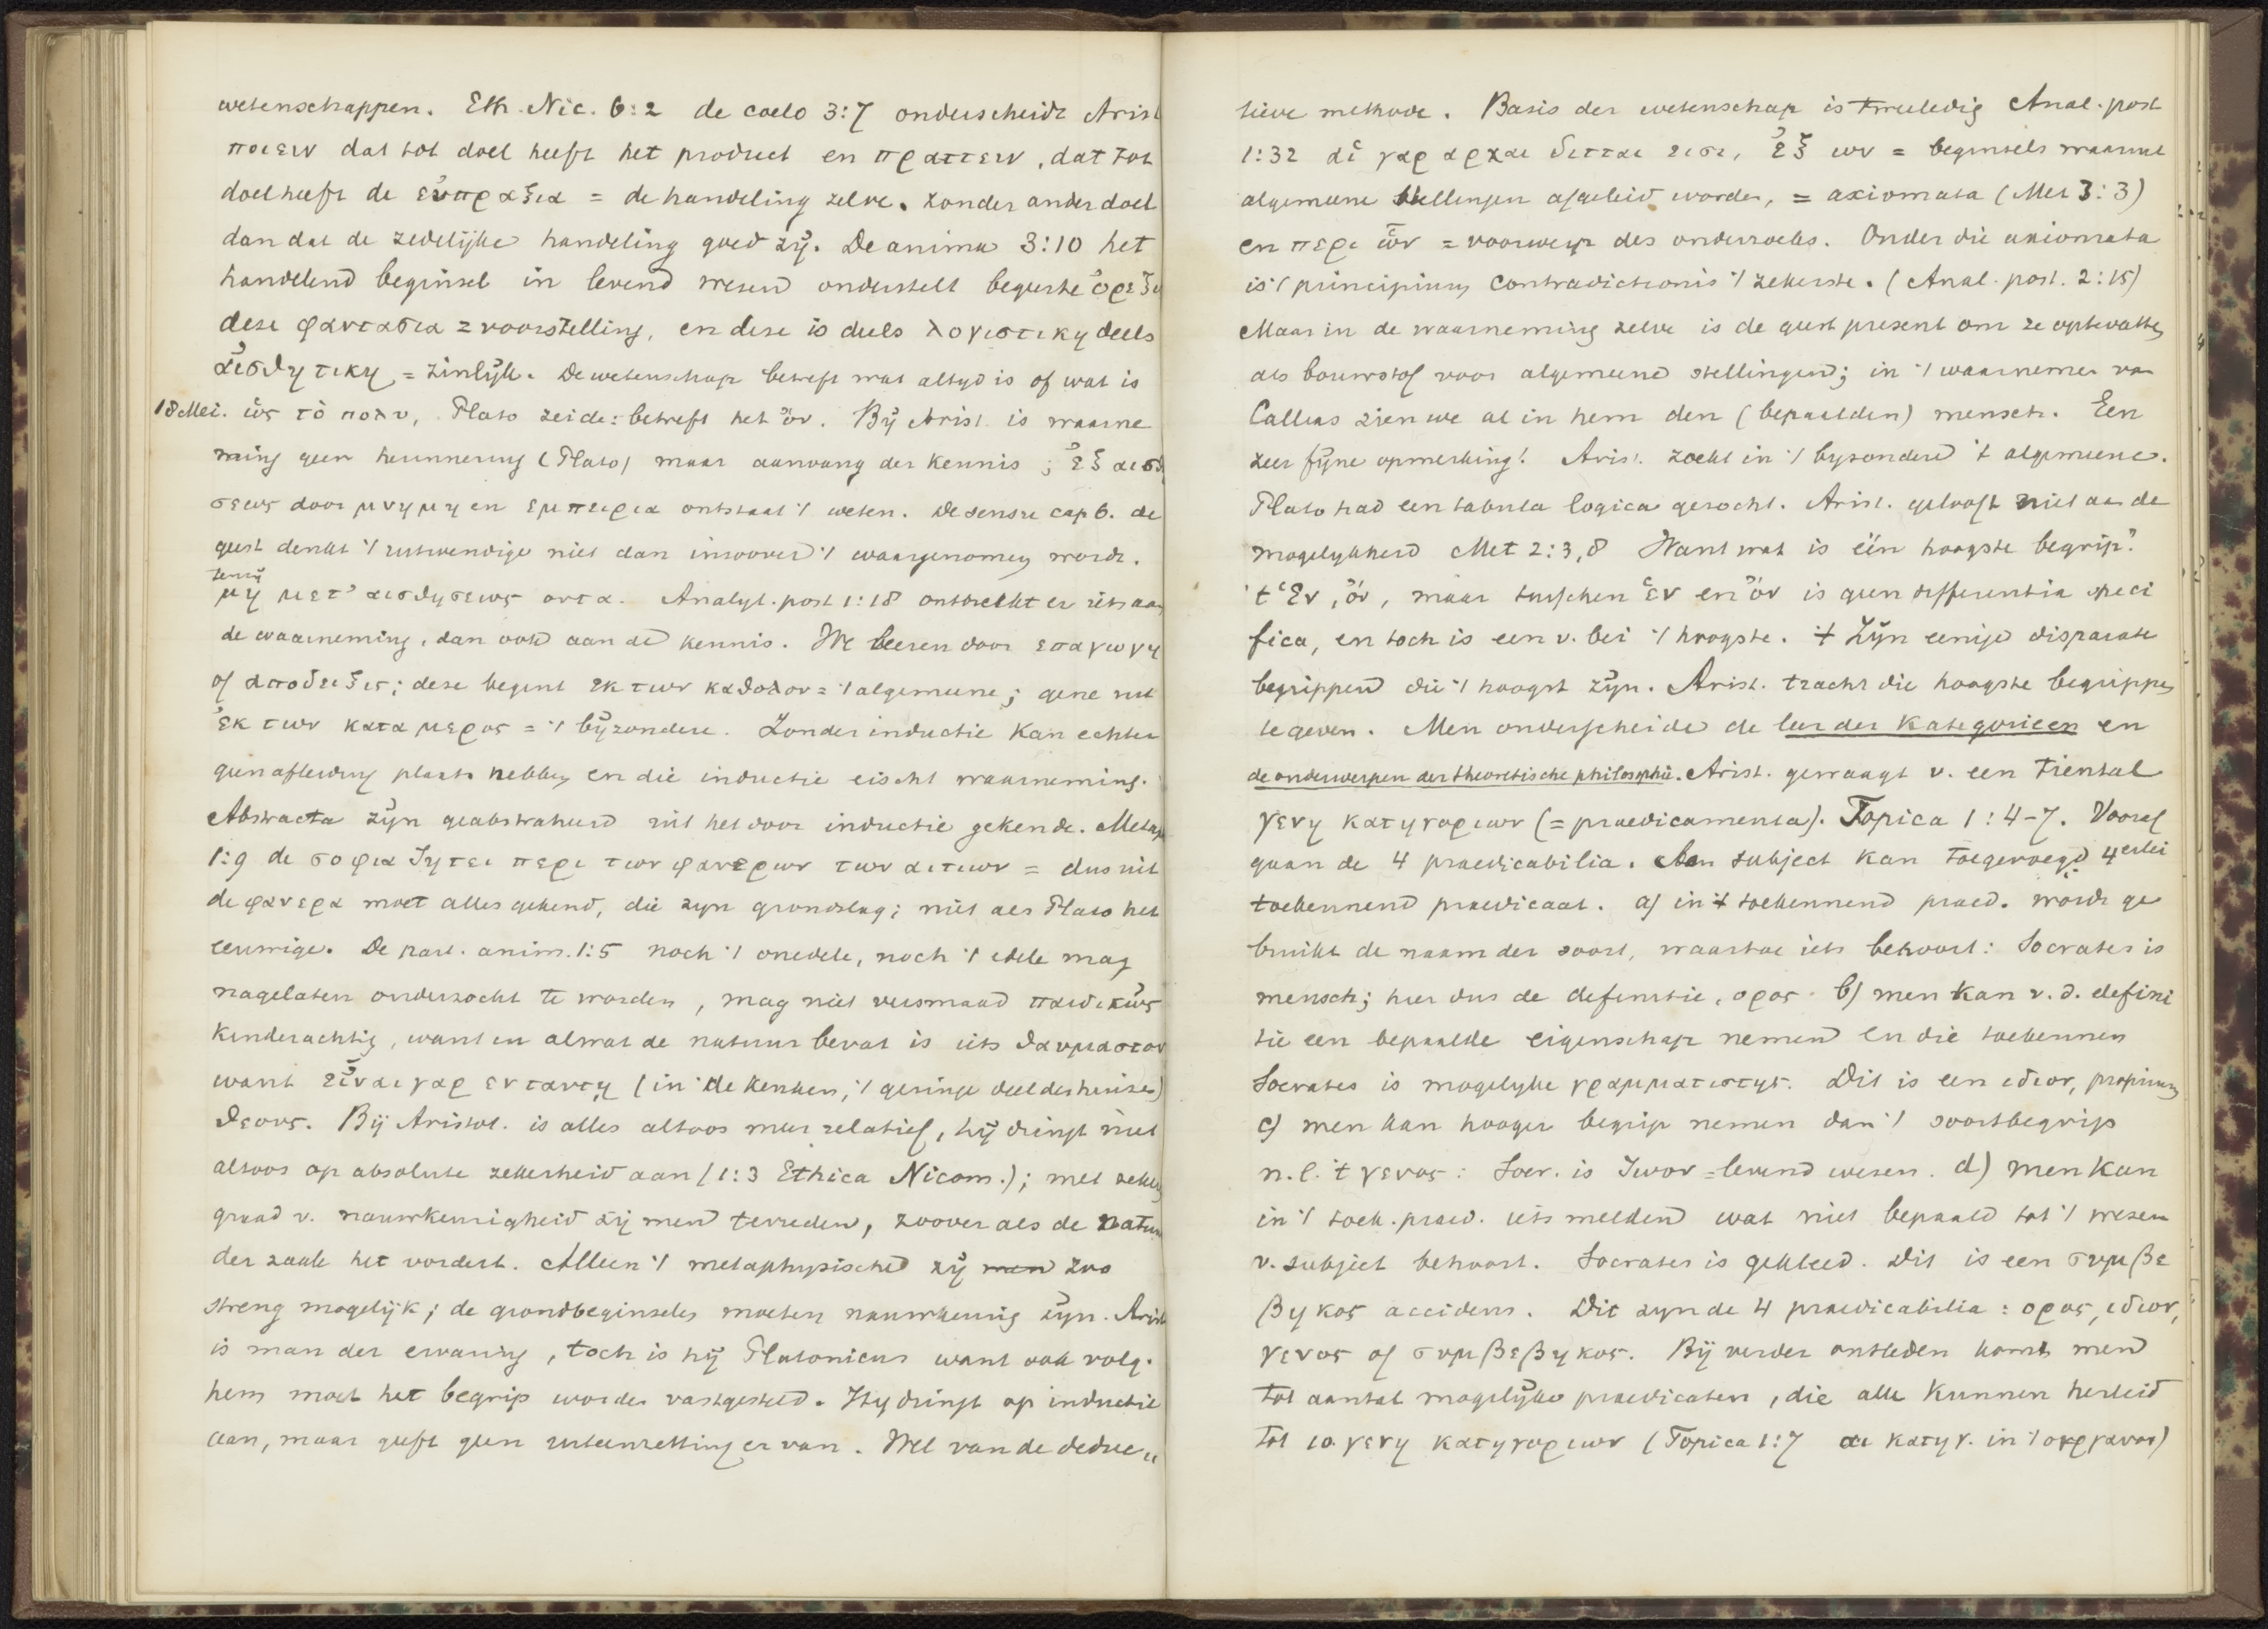 wetenschappen. Eth. Nic. 6:2 de coelo 3:7 onderscheidt Arist
ποιειν dat tot doel heeft het product en πραττειν, dat tot
doel heeft de εὐπραξια = de handeling zelve. zonder ander doel
dan dat de zedelijke handeling goed zij. De anima 3:10 het
handelend beginsel in levend wezen onderstelt begeerte ὀρεξις
deze φαντασια = voorstelling, en deze is deels λογιστικη deels
αἰσθητικη = zinlijk. De wetenschap betreft wat altyd is of wat is
18 Mei. ὡς τὸ πολυ, Plato zeide: betreft het ὄν. Bij Arist. is waarne
ming geen herinnering (Plato) maar aanvang der kennis; ἐξ αισθ
σεως door μνημη en εμπειρια ontstaat 't weten. De sensu cap 6. de
geest denkt 't uitwendige niet dan inzoover 't waargenomen wordt.
tenzij
μη μετ' αισθησεως οντα. Analyt. post 1:18 ontbreekt er iets aan
de waarneming, dan ook aan de kennis. We leeren door επαγωγη
of αποδειξις; deze begint εκ των καθολου = 't algemeene; gene uit
ἐκ των κατα μερος = 't bijzondere. Zonder inductie kan echter
geen afleiding plaats hebben en die inductie eischt waarneming.
Abstracta zijn geabstraheerd uit het door inductie gekende. Metaph
1:9 de σοφια ζητει περι των φανερων των αιτιων = dus uit
de φανερα moet alles gekend, die zyn grondslag; niet als Plato het
eeuwige. De part. anim. 1:5 noch 't onedele, noch 't edele mag
nagelaten onderzocht te worden, mag niet versmaad παιδικῶς
kinderachtig, want in alwat de natuur bevat is iets θαυμαστον
want εἶναι γαρ ενταυτῃ (in de keuken, 't geringe deel des huizes)
θεους. Bij Aristot. is alles altoos meer relatief, hij dringt niet
altoos op absolute zekerheid aan (1:3 Ethica Nicom.); met zekeren
graad v. nauwkeurigheid zij men tevreden, zoover als de natuur
der zaak het vordert. Alleen 't metaphysische zij men zoo
streng mogelijk; de grondbeginselen moeten nauwkeurig zijn. Arist
is man der ervaring, toch is hij Platonicus want ook volg.
hem moet het begrip worden vastgesteld. Hy dringt op inductie
aan, maar geeft geen uiteenzetting er van. Wel van de deduc
tieve methode. Basis der wetenschap is tweeledig Anal. post
1:32 αἱ γαρ αρχαι διτται εισι, ἐξ ων = beginsels waaruit
algemeene stellingen afgeleid worden, = axiomata (Met 3:3)
en περι ὧν = voorwerp des onderzoeks. Onder die axiomata
is 't principium contradictionis 't zekerste. (Anal. post. 2:15)
Maar in de waarneming zelve is de geest present om ze optevatten
als bouwstof voor algemeene stellingen; in 't waarnemen van
Callias zien we al in hem den (bepaalden) mensch. Een
zeer fijne opmerking! Arist. zoekt in 't byzondere 't algemeene.
Plato had een tabula logica gezocht. Arist. gelooft niet aan de
mogelykheid Met 2:3,8 Want wat is één hoogste begrip?
't ἑν, ὄν, maar tusschen ἑν en ὄν is geen differentia speci
fica, en toch is een v. bei 't hoogste. 't Zijn eenige disparate
begrippen die 't hoogst zijn. Arist. tracht die hoogste begrippen
te geven. Men onderscheide de leer der Kategorieen en
de onderwerpen der theoretische philosophie. Arist. gewaagt v. een tiental
γενη κατηγοριων (= praedicamenta). Topica 1:4-7. Vooraf
gaan de 4 praedicabilia. Aan subject kan toegevoegd 4erlei
toekennend praedicaat. a) in 't toekennend praed. wordt ge
bruikt de naam der soort, waartoe iets behoort: Socrates is
mensch; hier dus de definitie, ορος. b) men kan v. d. defini
tie een bepaalde eigenschap nemen en die toekennen
Socrates is mogelyke γραμματιστης. Dit is een ιδιον, proprium
c) men kan hooger begrip nemen dan 't soortbegrip
n.l. 't γενος: Socr. is ζωον = levend wezen. d) men kan
in 't toek. praed. iets melden wat niet bepaald tot 't wezen
v. subject behoort. Socrates is gekleed. Dit is een συμβε
βηκος accidens. Dit zyn de 4 praedicabilia: ορος, ιδιον,
γενος of συμβεβηκος. Bij verder ontleden komt men
tot aantal mogelijke praedicaten, die alle kunnen herleid
tot 10 γενη κατηγοριων (Topica 1:7 αι κατηγ. in 't οργανον)